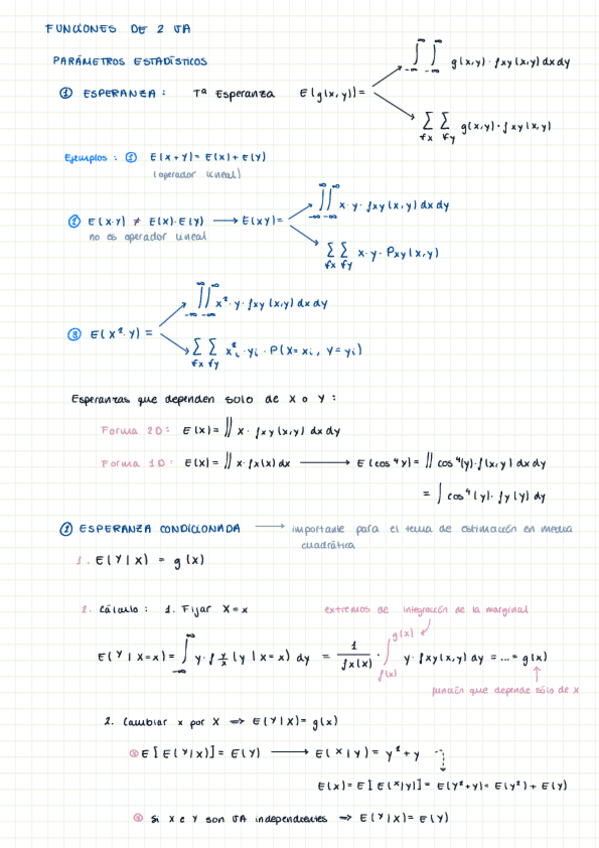 FUNCIONES DE 2 VA
PARÁMETROS ESTADÍSTICOS
① ESPERANZA : Tª Esperanza E(g(x,y)) =
∫_{-∞}^{∞} ∫_{-∞}^{∞} g(x,y) · fxy(x,y) dx dy
∑_{fx} ∑_{fy} g(x,y) · fxy(x,y)
Ejemplos : ① E(x+y) = E(x) + E(y)
(operador lineal)
② E(x·y) ≠ E(x)·E(y) → E(xy) =
no es operador lineal
∫_{-∞}^{∞} ∫_{-∞}^{∞} x·y·fxy(x,y) dx dy
∑_{fx} ∑_{fy} x·y·Pxy(x,y)
③ E(x²·y) =
∫_{-∞}^{∞} ∫_{-∞}^{∞} x²·y·fxy(x,y) dx dy
∑_{fx} ∑_{fy} x²ᵢ·yᵢ·P(X=xᵢ, Y=yᵢ)
Esperanzas que dependen solo de X o Y :
Forma 2D: E(x) = ∫∫ x·fxy(x,y) dx dy
Forma 1D: E(x) = ∫∫ x·fx(x) dx → E(cos⁴y) = ∫∫ cos⁴(y)·f(x,y) dx dy
= ∫ cos⁴(y)·fy(y) dy
② ESPERANZA CONDICIONADA → importante para el tema de estimación en media
cuadrática
1. E(Y|X) = g(x)
2. Cálculo : 1. Fijar X=x
extremos de integración de la marginal
E(Y|X=x) = ∫_{-∞}^{∞} y·f y/x (y|X=x) dy = 1/fx(x) · ∫_{f(x)}^{g(x)} y·fxy(x,y) dy = ... = g(x)
función que depende sólo de x
2. Cambiar x por X ⇒ E(Y|X) = g(x)
① E[E(Y|X)] = E(Y) → E(X|Y) = y² + y
E(x) = E[E(X|Y)] = E(Y²+Y) = E(Y²) + E(Y)
② Si X e Y son VA independientes ⇒ E(Y|X) = E(Y)